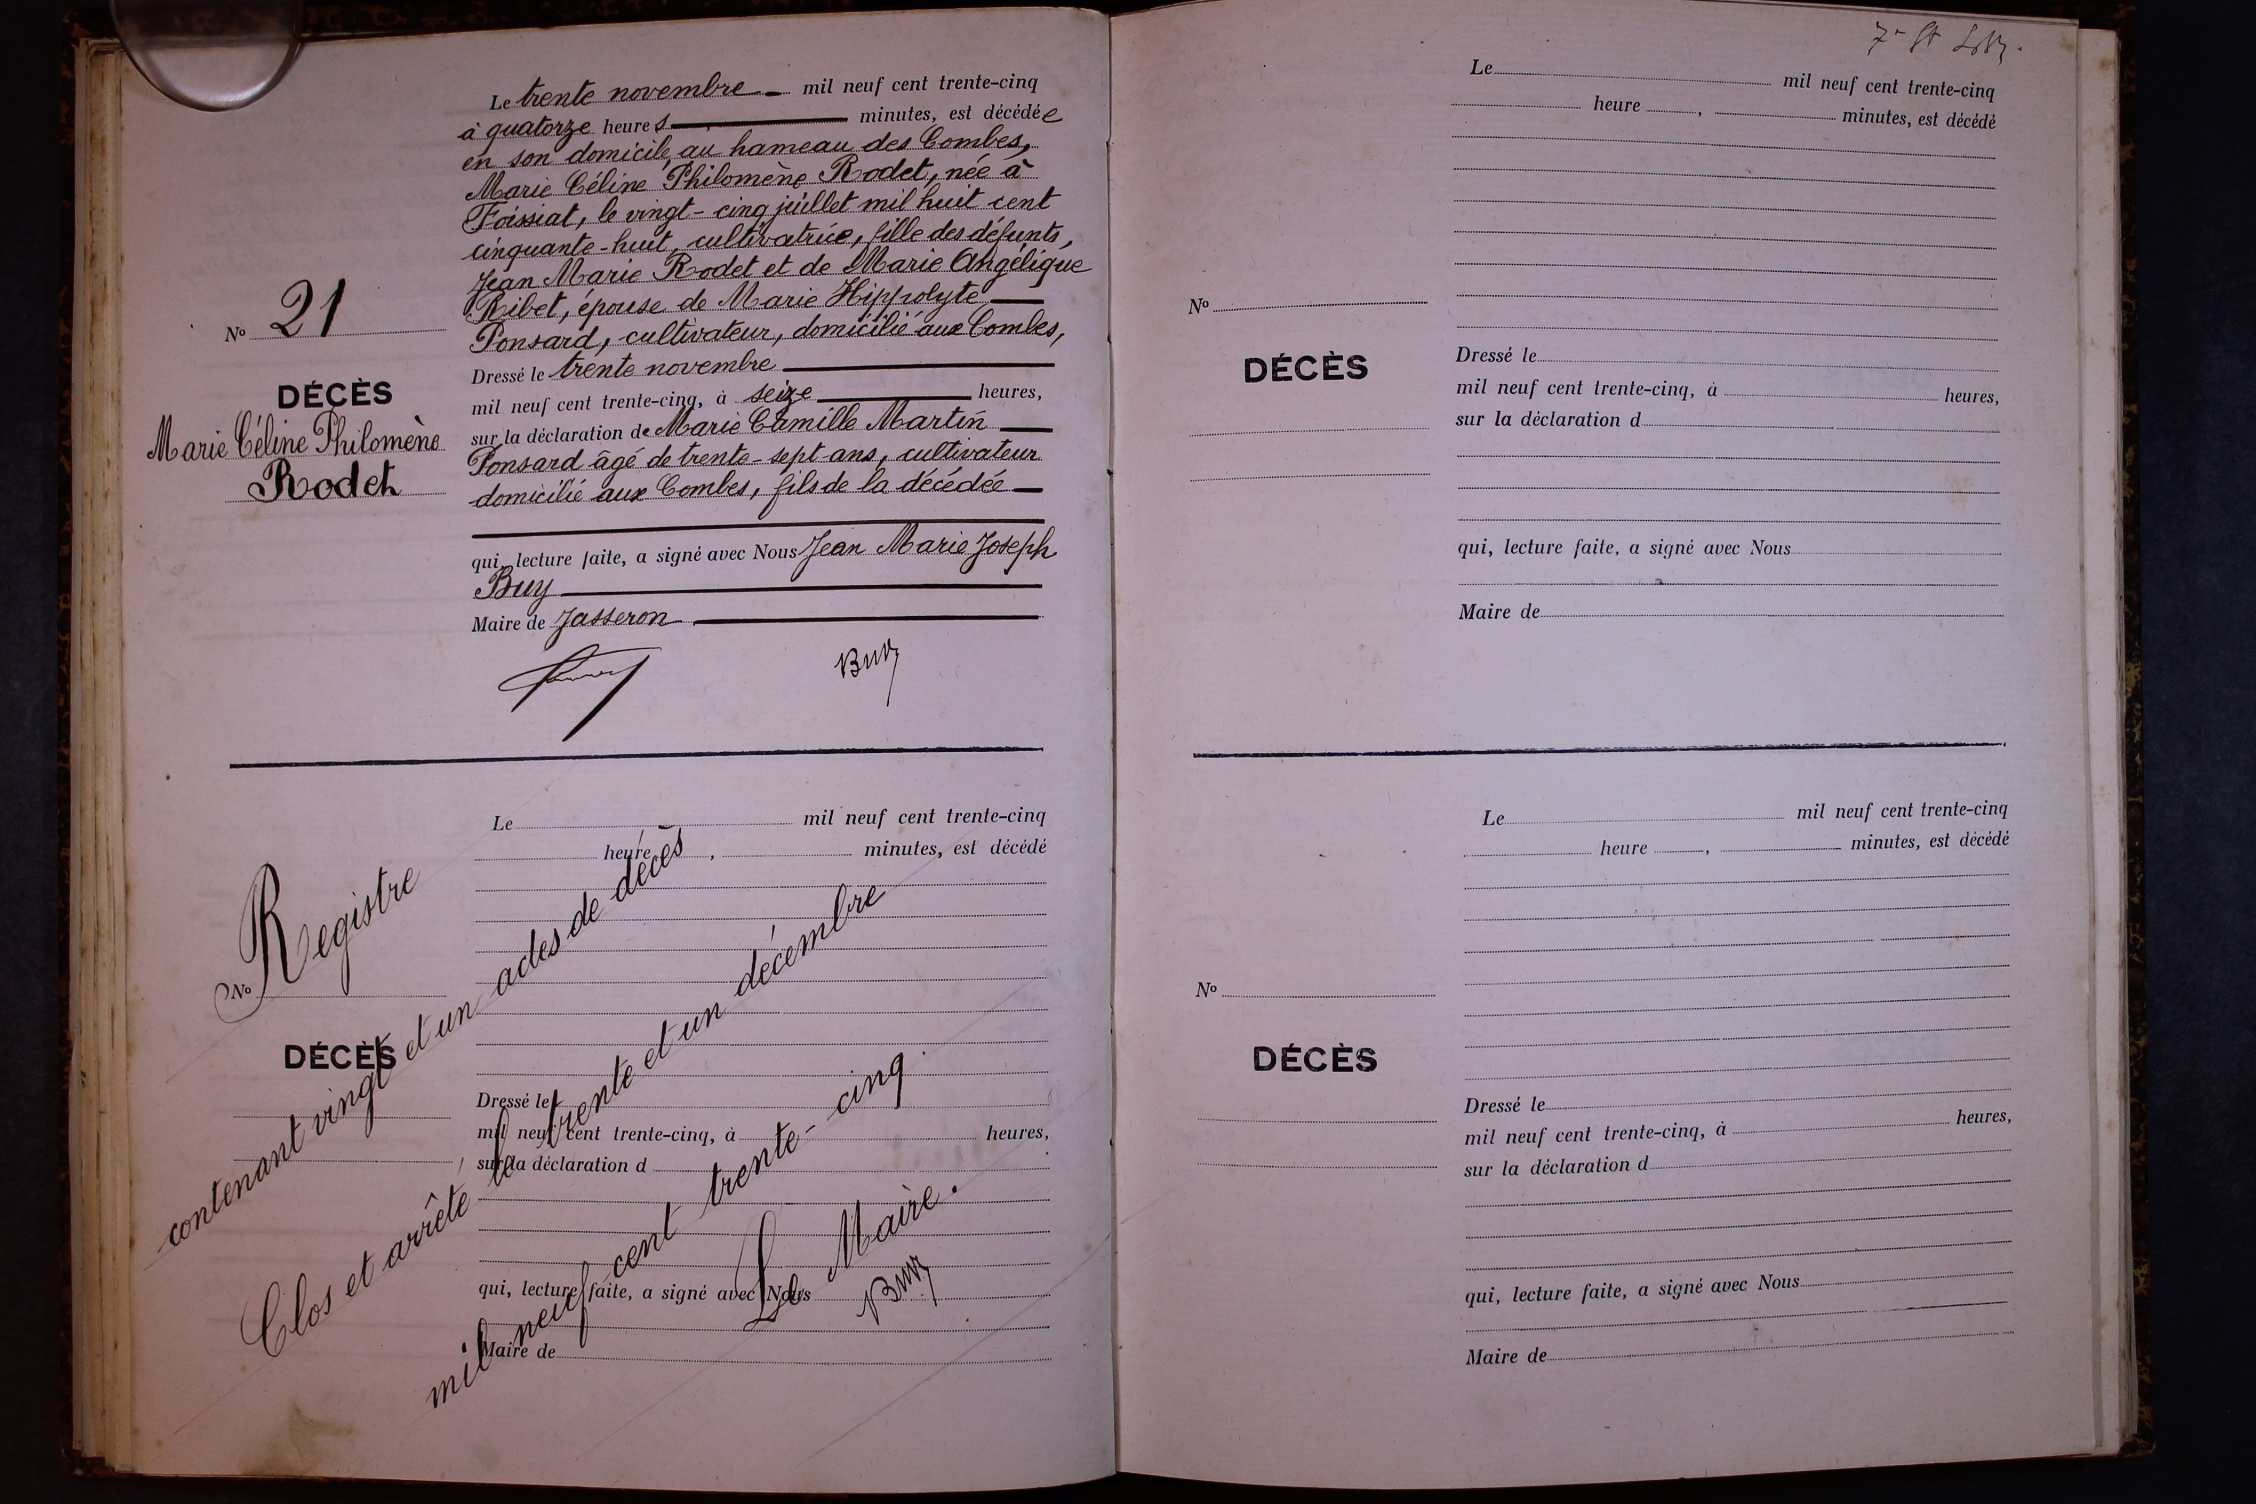 Le trente novembre mil neuf cent trente-cinq
à quatorze heures minutes, est décédée
en son domicile au hameau des Combes,
Marie Céline Philomène Rodet, née à
Foissiat, le vingt-cinq juillet mil huit cent
cinquante-huit, cultivatrice, fille des défunts,
Jean Marie Rodet et de Marie Angélique
Ribet, épouse de Marie Hippolyte
Ponsard, cultivateur, domicilié aux Combes,
Nº 21
DÉCÈS
Marie Céline Philomène
Rodet
Dressé le trente novembre
mil neuf cent trente-cinq, à seize heures,
sur la déclaration de Marie Camille Martin
Ponsard âgé de trente-sept ans, cultivateur
domicilié aux Combes, fils de la décédée
qui, lecture faite, a signé avec Nous Jean Marie Joseph
Buy
Maire de Jasseron
Buy
Le mil neuf cent trente-cinq
heure , minutes, est décédé
Nº
DÉCÈS
Dressé le
mil neuf cent trente-cinq, à heures,
sur la déclaration d
qui, lecture faite, a signé avec Nous
Maire de
Registre
contenant vingt et un actes de décès
Clos et arrêté le trente et un décembre
mil neuf cent trente-cinq.
Le Maire.
Buy
Le mil neuf cent trente-cinq
heure , minutes, est décédé
Nº
DÉCÈS
Dressé le
mil neuf cent trente-cinq, à heures,
sur la déclaration d
qui, lecture faite, a signé avec Nous
Maire de
Le mil neuf cent trente-cinq
heure , minutes, est décédé
Nº
DÉCÈS
Dressé le
mil neuf cent trente-cinq, à heures,
sur la déclaration d
qui, lecture faite, a signé avec Nous
Maire de